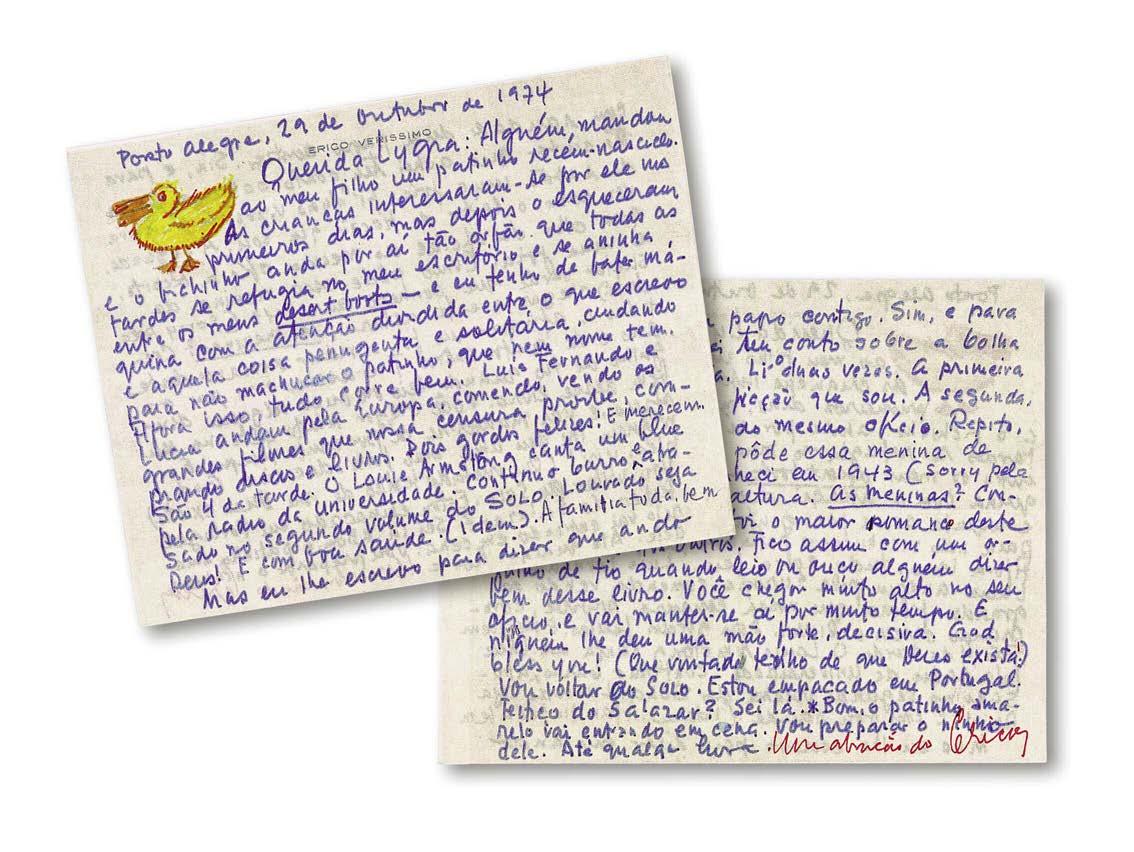 Porto Alegre, 29 de Outubro de 1974
ERICO VERISSIMO
Querida Lygia: Alguém, mandou
ao meu filho um patinho recém-nascido.
As crianças interessaram-se por ele nos
primeiros dias, mas depois o esqueceram
e o bichinho anda por aí tão órfão que todas as
tardes se refugia no meu escritório e se aninha
entre os meus desert boots — e eu tenho de bater má-
quina com a atenção dividida entre o que escrevo
e aquela coisa penugenta e solitária, cuidando
para não machucar o patinho que nem nome tem.
Afora isso, tudo corre bem. Luis Fernando e
Lucia andam pela Europa, comendo, vendo os
grandes filmes que nossa censura proíbe, com-
prando discos e livros. Dois gordos felizes! E merecem.
São 4 da tarde. O Louis Armstong canta um blue
pela radio da universidade. Continuo burro, e aba-
fado no segundo volume do SOLO. Louvado seja
Deus! E com boa saúde. (Idem). A família toda, bem
Mas eu lhe escrevo para dizer que ando
papo contigo. Sim, e para
teu conto sobre a bolha
Li-o duas vezes. A primeira
ficção que sou. A segunda,
do mesmo ofício. Repito,
pôde essa menina de
heci em 1943 (sorry pela
altura. As meninas? Com-
vi o maior romance deste
outros. Fico assim com um or-
gulho de tio quando leio ou ouço alguém dizer
bem desse livro. Você chegou muito alto no seu
ofício, e vai manter-se aí por muito tempo. E
niguém lhe deu uma mão forte, decisiva. God
bless you! (Que vontade tenho de que Deus exista!)
Vou voltar ao SOLO. Estou empacado em Portugal.
Feitiço do Salazar? Sei lá. *Bom, o patinho ama-
relo vai entrando em cena. Vou preparar o ninho
dele. Até qualquer hora. Um abração do Erico